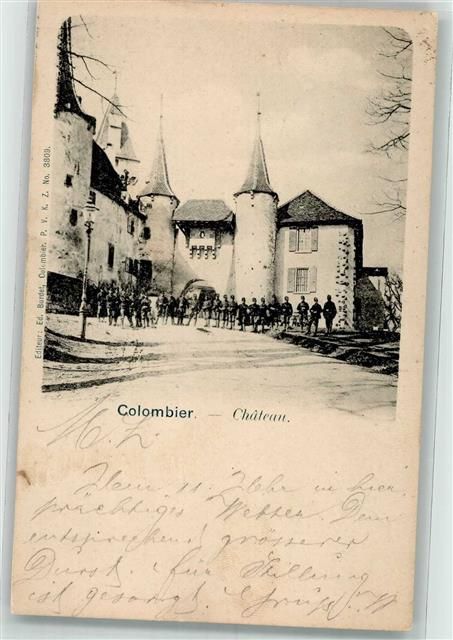 Editeur: Ed. Burdet, Colombier. P. V. K. Z. No. 3809.
Colombier. — Château.
M. L.
11. in hier
prächtiges Wetter. Dem
entsprechend grösserer
Durst. für Stillung
ist gesorgt. Gruss.